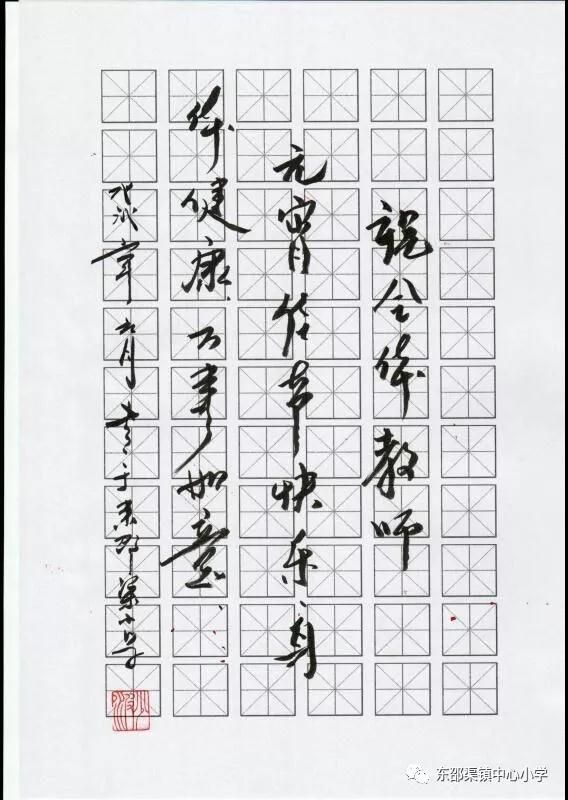 祝全体教师
元宵佳节快乐身
体健康万事如意
戊戌年正月于东邵渠小学
东邵渠镇中心小学